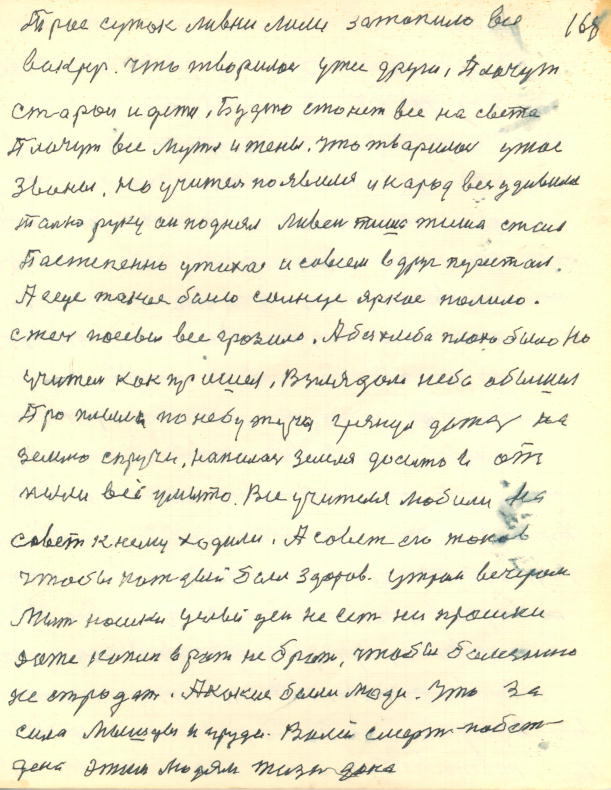 Трое суток ливни лили затопило все 168
вакруг. что творилос уже други, Плачут
старои и дети, Будто стонет все на света
Плачут все Мужя и жены. что тварилос ужос
Звоны. Но учител появился и народ весь удивился
талко руку он поднял ливен тиша тиша стал
Пастепенно утихае и совсем вдруг перестал.
А еще такое было солнце яркое полило.
стеч посевы все грозило. А без хлеба плохо было Но
учител как пришел, Взглядом неба обышел
Про плыла по небу туча грянул дожд на
землю с кручи, напилас земля досыто и от
пыли всё умыто. Все учителя любили На
совет к нему ходили. А совет его таков
чтобы каждый был здоров. утром вечером
Мыт ножки целый ден не ест ни крошки
даже капли в рот не брат, чтобы болезнию
не страдат. А какие были люди. Что за
сила Мышцы и груди. Валей смерт побеж-
дена этим людям жизн дона